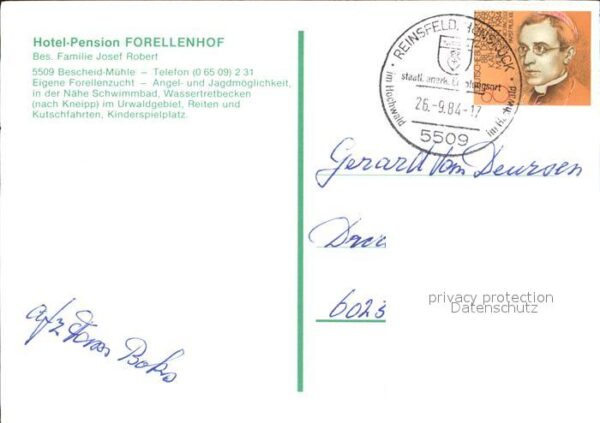 Hotel-Pension FORELLENHOF
Bes. Familie Josef Robert
5509 Bescheid-Mühle – Telefon (0 65 09) 2 31
Eigene Forellenzucht – Angel- und Jagdmöglichkeit,
in der Nähe Schwimmbad, Wassertretbecken
(nach Kneipp) im Urwaldgebiet, Reiten und
Kutschfahrten, Kinderspielplatz.
REINSFELD, HUNSRÜCK
staatl. anerk. Erholungsort
im Hochwald
im Hochwald
26.-9.84-17
5509
Gerard Van Deursen
6023
privacy protection
Datenschutz
afz